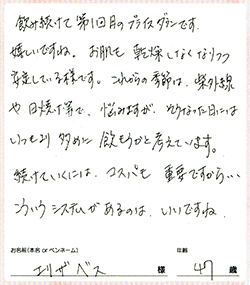 飲み続けて第1回目のプライスダウンです。
嬉しいですね。お肌も乾燥しなくなりつつ
安定している様です。これからの季節は、紫外線
や日焼け等で、悩みますが、そうなった日には
いつもより多めに飲もうかと考えています。
続けていくには、コスパも重要ですから…
こういうシステムがあるのは、いいですね。
お名前(本名 or ペンネーム) 年齢
エリザベス 様 47 歳